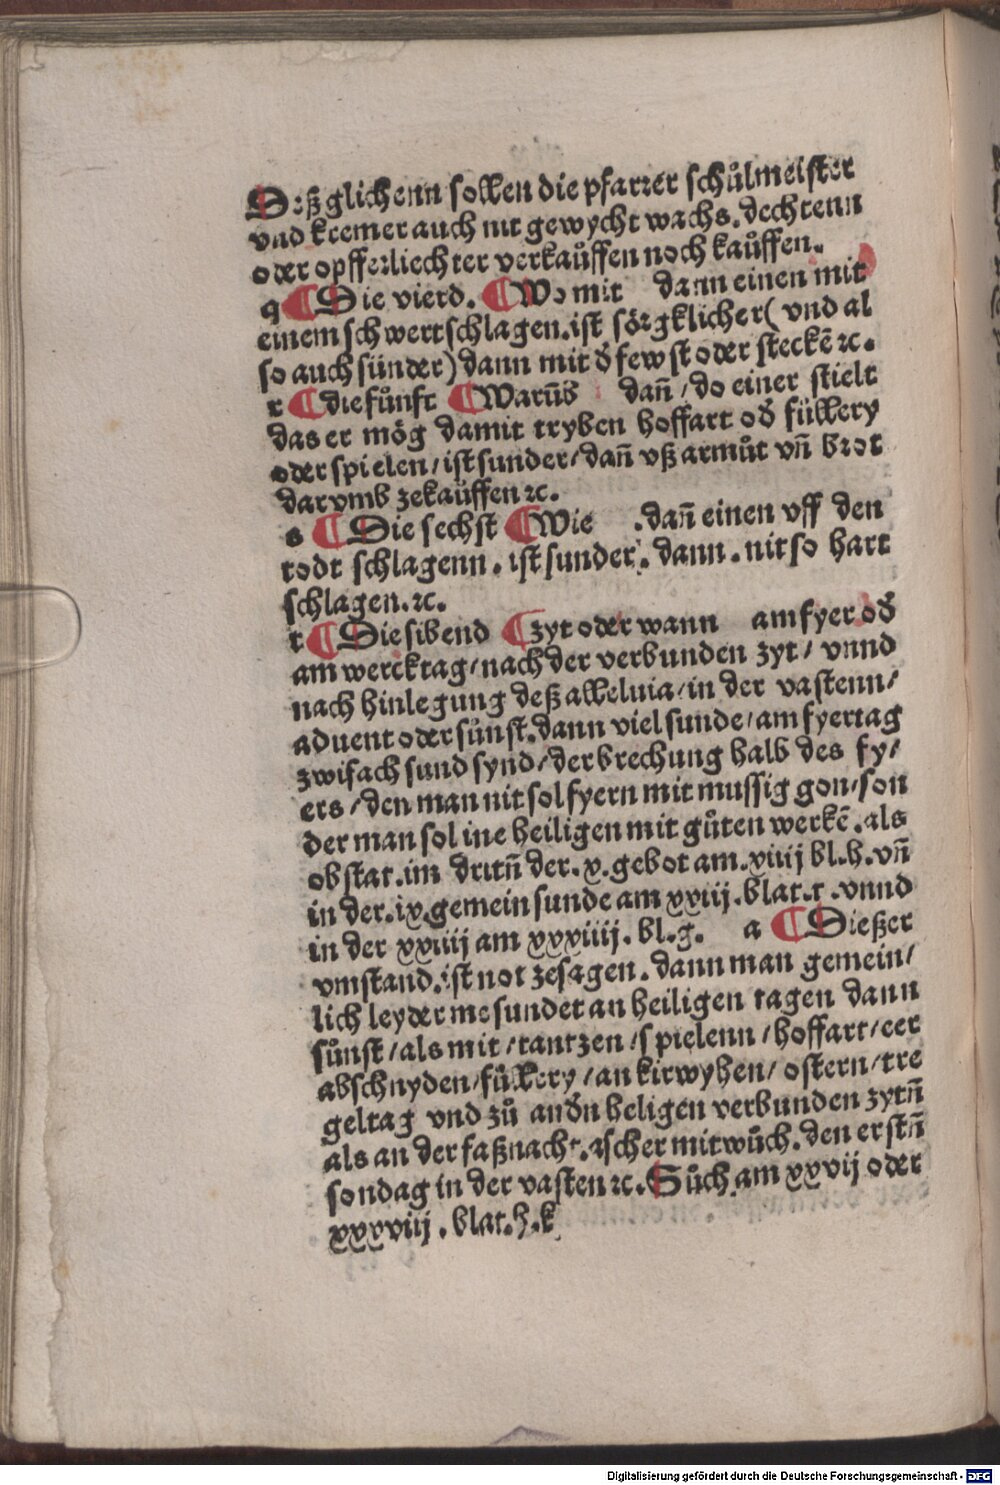 Deßglichenn sollen die pfarrer schůlmeister
vnd kremer auch nit gewycht wachs. dechtenn
oder opfferliechter verkaůffen noch kaůffen.
q ¶ Die vierd. ¶ Wo mit dann einen mit
einem schwert schlagen. ist sörgklicher( vnd al
so auch sünder) dann mit d̕ fewst oder steckē ꝛc.
r ¶ die fůnfft ¶ Warūb dañ / do einer stielt
das er mög damit tryben hoffart od̕ füllery
oder spielen / ist sunder / dañ vß armůt vñ brot
dar vmb zekaůffen ꝛc.
s ¶ Die sechst ¶ Wie . dañ einen vff den
todt schlagenn . ist sunder . dann . nit so hart
schlagen. ꝛc.
t ¶ Die sibend ¶ zyt oder wann am fyer od̕
am wercktag / nach der verbunden zyt / vnnd
nach hinlegung deß alleluia / in der vastenn /
aduent oder sůnst. dann viel sunde / am fyertag
zwifach sund synd / der brechung halb des fy/
ers / den man nit sol fyern mit mussig gon / son
der man sol ine heiligen mit gůten werkē. als
ob stat. im dritñ der. x. gebot am. xiiij bl. h. vñ
in der. ix. gemein sunde am xxiij. blat. r . vnnd
in der xxiiij am xxxiiij. bl. g. a ¶ Dießer
vmstand. ist not zesagen. dann man gemein/
lich leyder me sundet an heiligen tagen dann
sůnst / als mit / tantzen / spielenn / hoffart / eer
abschnyden / fůllery / an kirwyhen / ostern / tre
geltag vnd zů and̕n heligen verbunden zytñ
als an der faßnacht. äscher mitwůch. den erstñ
sondag in der vasten ꝛc. Sůch am xxvij oder
xxxviij . blat. h. k
Digitalisierung gefördert durch die Deutsche Forschungsgemeinschaft - DFG